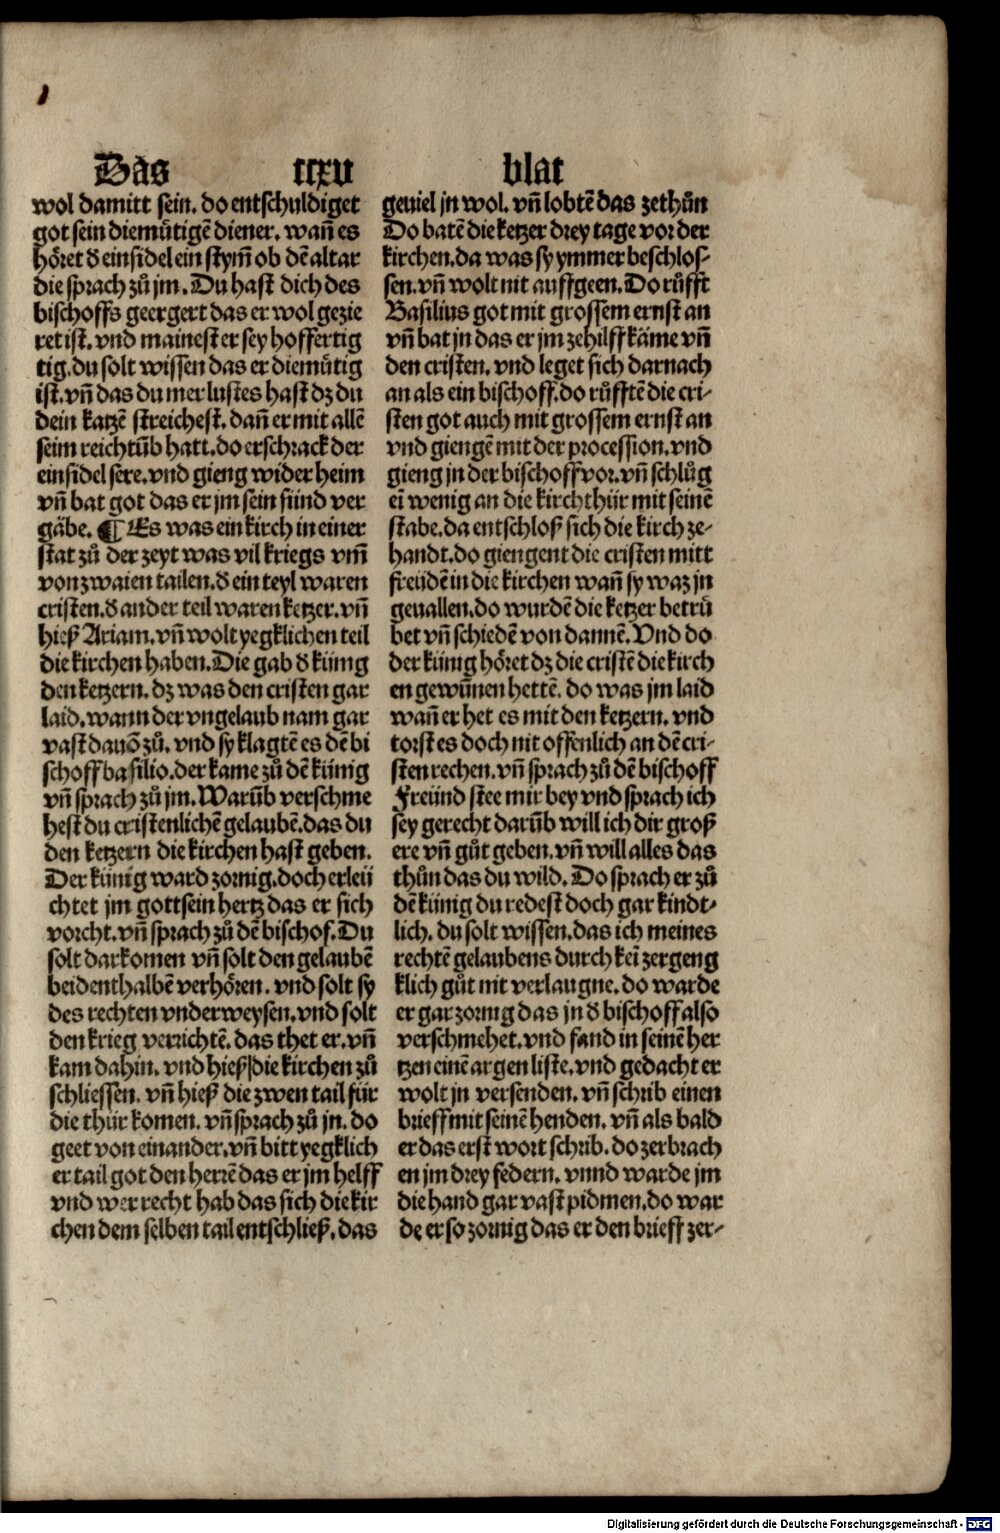 Das ccxv blat
wol damitt sein. do entschuldiget
got sein diemůtigē diener. wañ es
hőret d einsidel ein stym̄ ob dē altar
die sprach zů jm. Du hast dich des
bischoffs geergert das er wol gezie
ret ist. vnd mainest er sey hoffertig
tig. du solt wissen das er diemůtig
ist. vñ das du mer lustes hast dz du
dein katzē streichest. dañ er mit allē
seim reichtūb hatt. do erschrack der
einsidel sere. vnd gieng wider heim
vñ bat got das er jm sein sünd ver
gåbe. ¶ Es was ein kirch in einer
stat zů der zeyt was vil kriegs vm̄
von zwaien tailen. d ein teyl waren
cristen. d ander teil waren ketzer. vñ
hieß Ariam. vñ wolt yegklichen teil
die kirchen haben. Die gab d künig
den ketzern. dz was den cristen gar
laid. wann der vngelaub nam gar
vast dauō zů. vnd sy klagtē es dē bi
schoff basilio. der kame zů dē künig
vñ sprach zů jm. Warūb verschme
hest du cristenlichē gelaubē. das du
den ketzern die kirchen hast geben.
Der künig ward zornig. doch erleü
chtet jm gott sein hertz das er sich
vorcht. vñ sprach zů dē bischof. Du
solt dar komen vñ solt den gelaubē
beidenthalbē verhőren. vnd solt sy
des rechten vnderweysen. vnd solt
den krieg verrichtē. das thet er. vñ
kam dahin. vnd hieß die kirchen zů
schliessen. vñ hieß die zwen tail für
die thür komen. vñ sprach zů jn. do
geet von einander. vñ bitt yegklich
er tail got den herrē das er jm helff
vnd wer recht hab das sich die kir
chen dem selben tail entschließ. das
geuiel jn wol. vñ lobtē das zethůn
Do batē die ketzer drey tage vor der
kirchen. da was sy ymmer beschlos-
sen. vñ wolt nit auffgeen. Do růfft
Basilius got mit grossem ernst an
vñ bat jn das er jm zehilff kåme vñ
den cristen. vnd leget sich darnach
an als ein bischoff. do růfftē die cri-
sten got auch mit grossem ernst an
vnd giengē mit der procession. vnd
gieng jn der bischoff vor. vñ schlůg
eī wenig an die kirchthür mit seinē
stabe. da entschloß sich die kirch ze-
handt. do giengent die cristen mitt
freüdē in die kirchen wañ sy waz jn
geuallen. do wurdē die ketzer betrů
bet vñ schiedē von dannē. Vnd do
der künig hőret dz die cristē die kirch
en gewūnen hettē. do was jm laid
wañ er het es mit den ketzern. vnd
torst es doch nit offenlich an dē cri-
sten rechen. vñ sprach zů dē bischoff
Freünd stee mir bey vnd sprach ich
sey gerecht darūb will ich dir groß
ere vñ gůt geben. vñ will alles das
thůn das du wild. Do sprach er zů
dē künig du redest doch gar kindt-
lich. du solt wissen. das ich meines
rechtē gelaubens durch keī zergeng
klich gůt nit verlaugne. do warde
er gar zornig das jn d bischoff also
verschmehet. vnd fand in seinē her
tzen einē argen liste. vnd gedacht er
wolt jn versenden. vñ schrib einen
brieff mit seinē henden. vñ als bald
er das erst wort schrib. do zerbrach
en jm drey federn. vnnd warde jm
die hand gar vast pidmen. do war
de er so zornig das er den brieff zer-
Digitalisierung gefördert durch die Deutsche Forschungsgemeinschaft - DFG